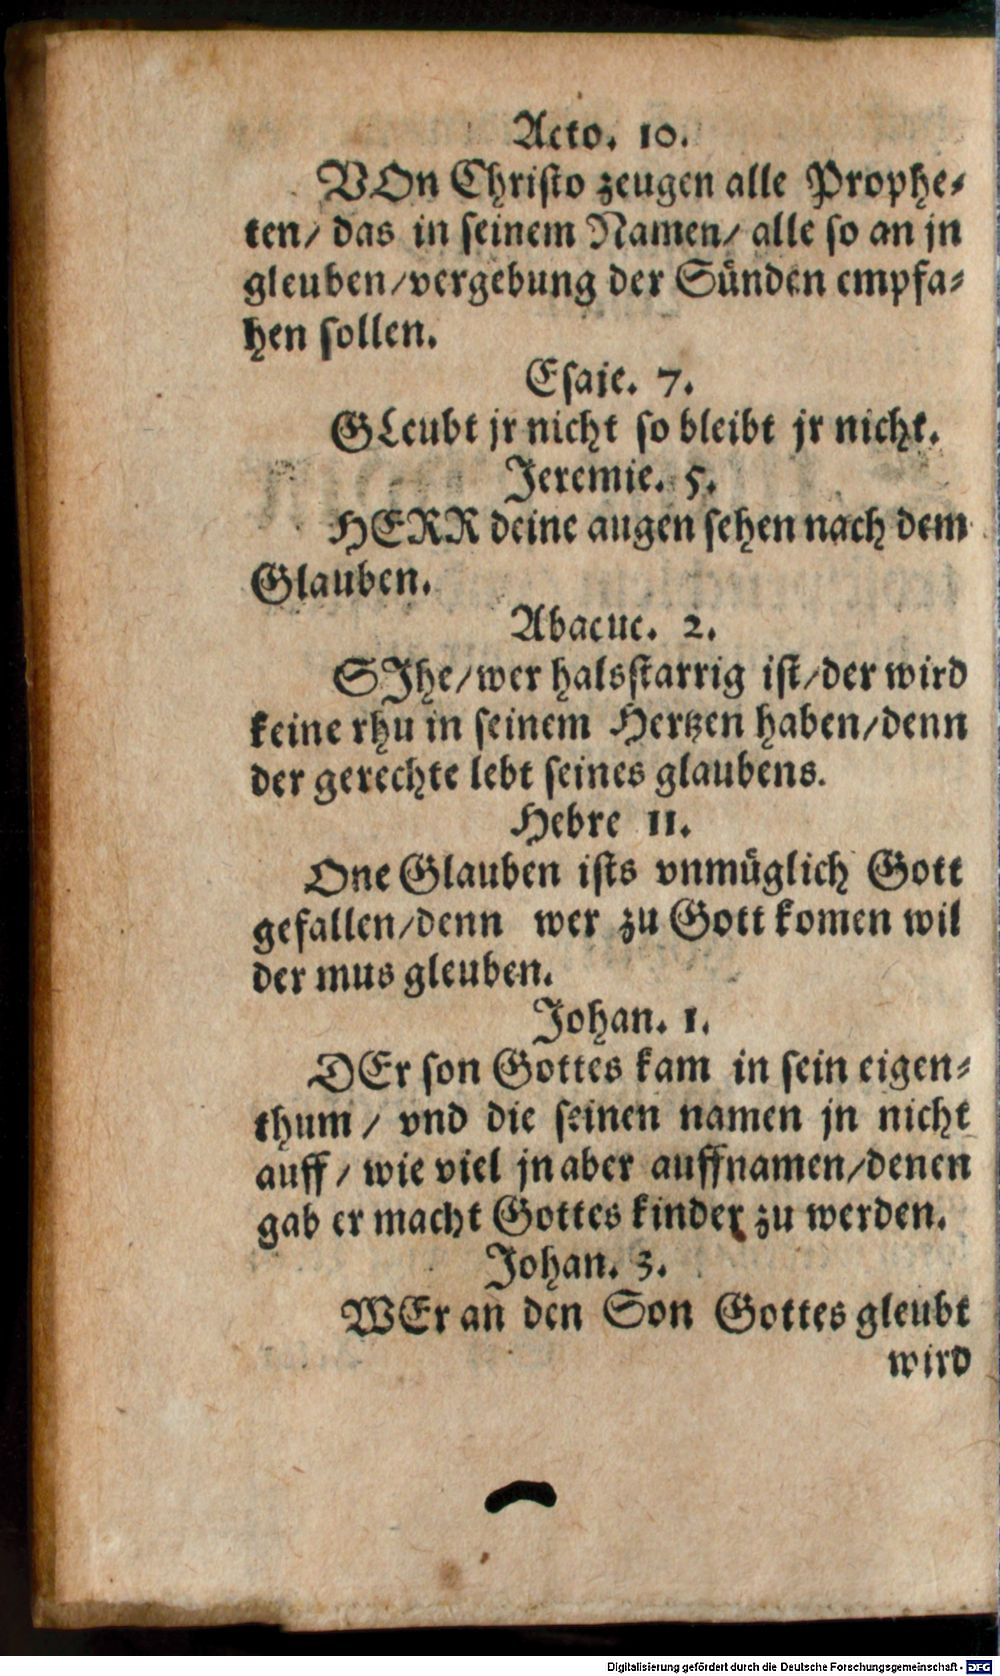 Acto. 10.
VOn Christo zeugen alle Prophe-
ten/ das in seinem Namen/ alle so an jn
gleuben/vergebung der Sünden empfa-
hen sollen.
Esaie. 7.
GLeubt jr nicht so bleibt jr nicht.
Jeremie. 5.
HERR deine augen sehen nach dem
Glauben.
Abacuc. 2.
SJhe/wer halsstarrig ist/der wird
keine rhu in seinem Hertzen haben/denn
der gerechte lebt seines glaubens.
Hebre 11.
One Glauben ists vnmüglich Gott
gefallen/denn wer zu Gott komen wil
der mus gleuben.
Johan. 1.
DEr son Gottes kam in sein eigen-
thum / vnd die seinen namen jn nicht
auff / wie viel jn aber auffnamen/denen
gab er macht Gottes kinder zu werden.
Johan. 3.
WEr an den Son Gottes gleubt
wird
Digitalisierung gefördert durch die Deutsche Forschungsgemeinschaft - DFG